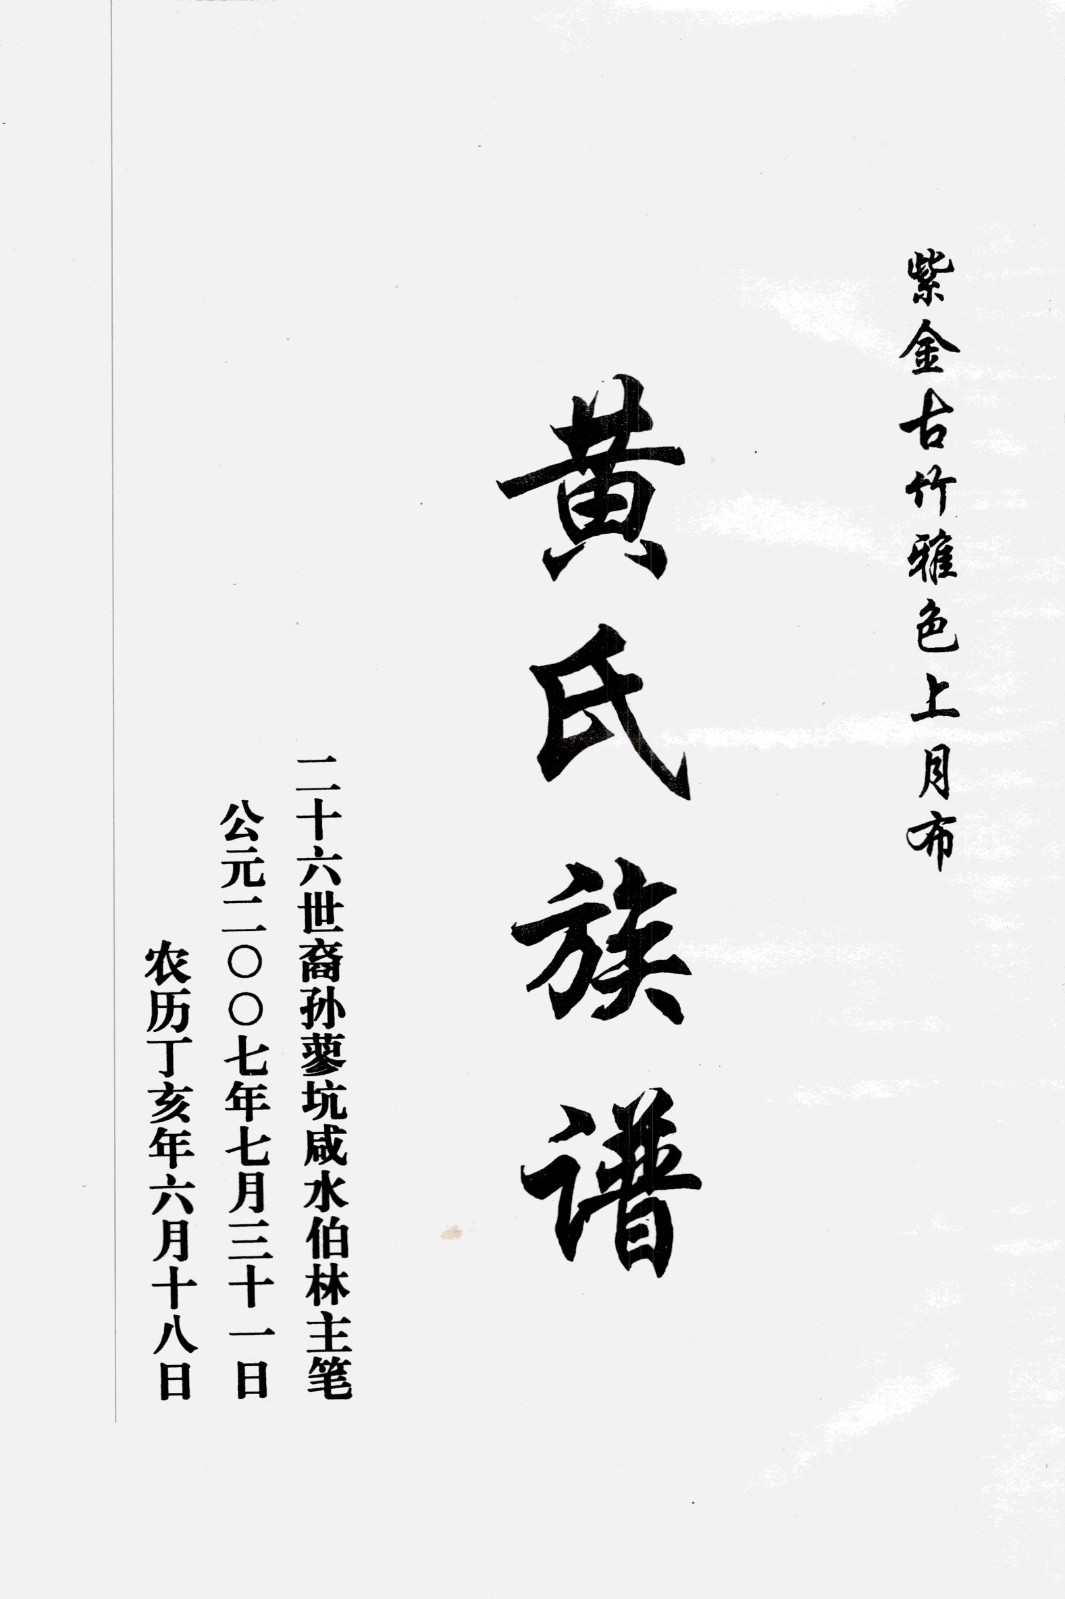 紫金古竹雅色上月布
黄氏族谱
二十六世裔孙蓼坑咸水伯林主笔
公元二〇〇七年七月三十一日
农历丁亥年六月十八日